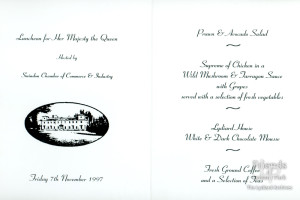 Luncheon for Her Majesty the Queen
Hosted by
Swindon Chamber of Commerce & Industry
Friday 7th November 1997
Prawn & Avocado Salad
~
Supreme of Chicken in a
Wild Mushroom & Tarragon Sauce
with Grapes
served with a selection of fresh vegetables
~
Lydiard House
White & Dark Chocolate Mousse
~
Fresh Ground Coffee
and a Selection of Teas
The Lydiard Archives